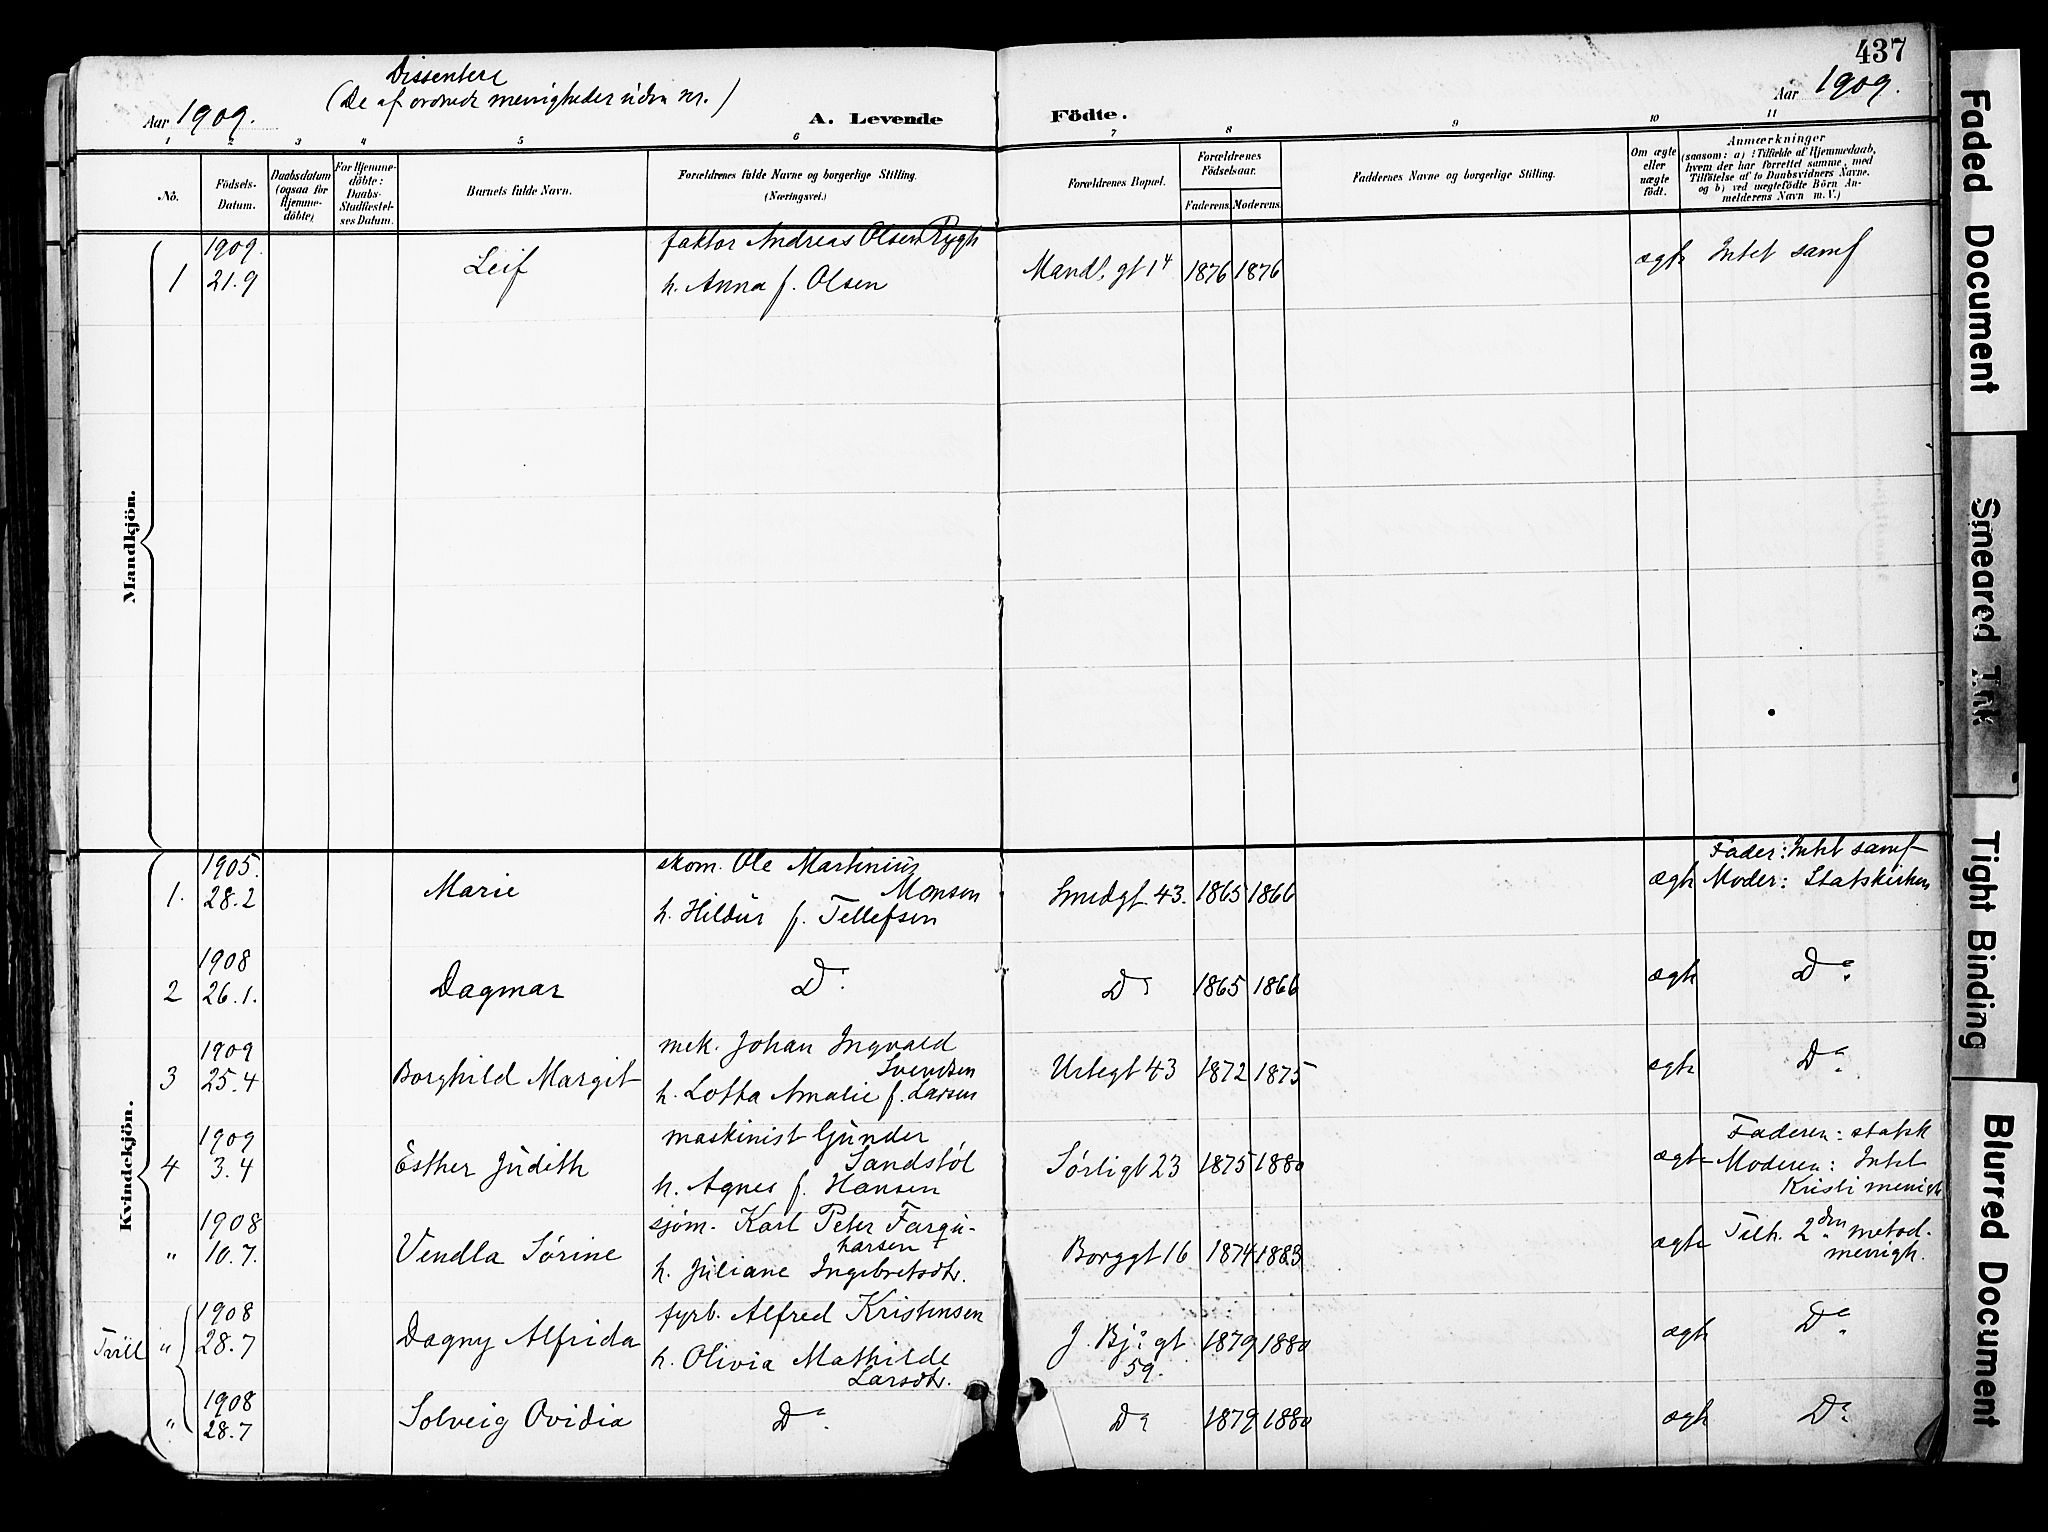 437
Aar 1909.
Dissentere
(De af ordnede menigheder uden nr.)
A. Levende Födte.
Aar 1909.
1 2 3 4 5 6 7 8 9 10 11
No.
Födsels-Datum.
Daabsdatum (ogsaa for Hjemme-döbte)
For Hjemme-döbte: Daabs-Stadfæstel-ses Datum.
Barnets fulde Navn.
Forældrenes fulde Navne og borgerlige Stilling.
(Næringsvei.)
Forældrenes Bopæl.
Forældrenes Födselsaar.
Faderens. Moderens.
Faddernes Navne og borgerlige Stilling.
Om ægte eller uægte födt.
Anmærkninger
(saasom: a) i Tilfælde af Hjemmedaab,
hvem der har forrettet samme, med
Tilföielse af to Daabsvidners Navne.
og b) ved uægtefödte Börn An-
melderens Navn m. V.)
Mandkjön.
1909.
faktor Andreas Olsen Rygh
1 21.9 Leif h. Anna f. Olsen Mandl. gt 14 1876 1876 ægte Intet samf
Kvindekjön.
1905. skom. Ole Martinius Fader: Intet samf
1. 28.2 Marie Monsen Smedgt 43. 1865 1866 ægte Moder: Statskirken
h. Hildur f. Tellefsen
1908
2 26.1. Dagmar Do Do 1865 1866 ægte Do
1909 mek. Johan Ingvald
3 25.4 Borghild Margit Svendsen Urtegt 43 1872 1875 ægte Do
h. Lotta Amalie f. Larsen
1909 maskinist Gunder Faderen: statsk
4 3.4 Esther Judith Sandstøl Sørligt 23 1875 1880 ægte Moderen: Intet
h. Agnes f. Hansen Kristi menigh
1908 sjøm. Karl Peter Farqu-
" 10.7. Vendla Sørine harsen Borggt 16 1874 1883 ægte Tilh. 2den metod.
h. Juliane Ingebretsdtr. menigh.
1908 fyrb. Alfred Kristensen
Tvill " 28.7 Dagny Alfrida h. Olivia Mathilde J. Bj. gt 1879 1880 ægte Do
Larsdtr. 59.
1908
" 28.7 Solveig Ovidia Do Do 1879 1880 ægte Do
Faded Document
Smeared Ink
Tight Binding
Blurred Document